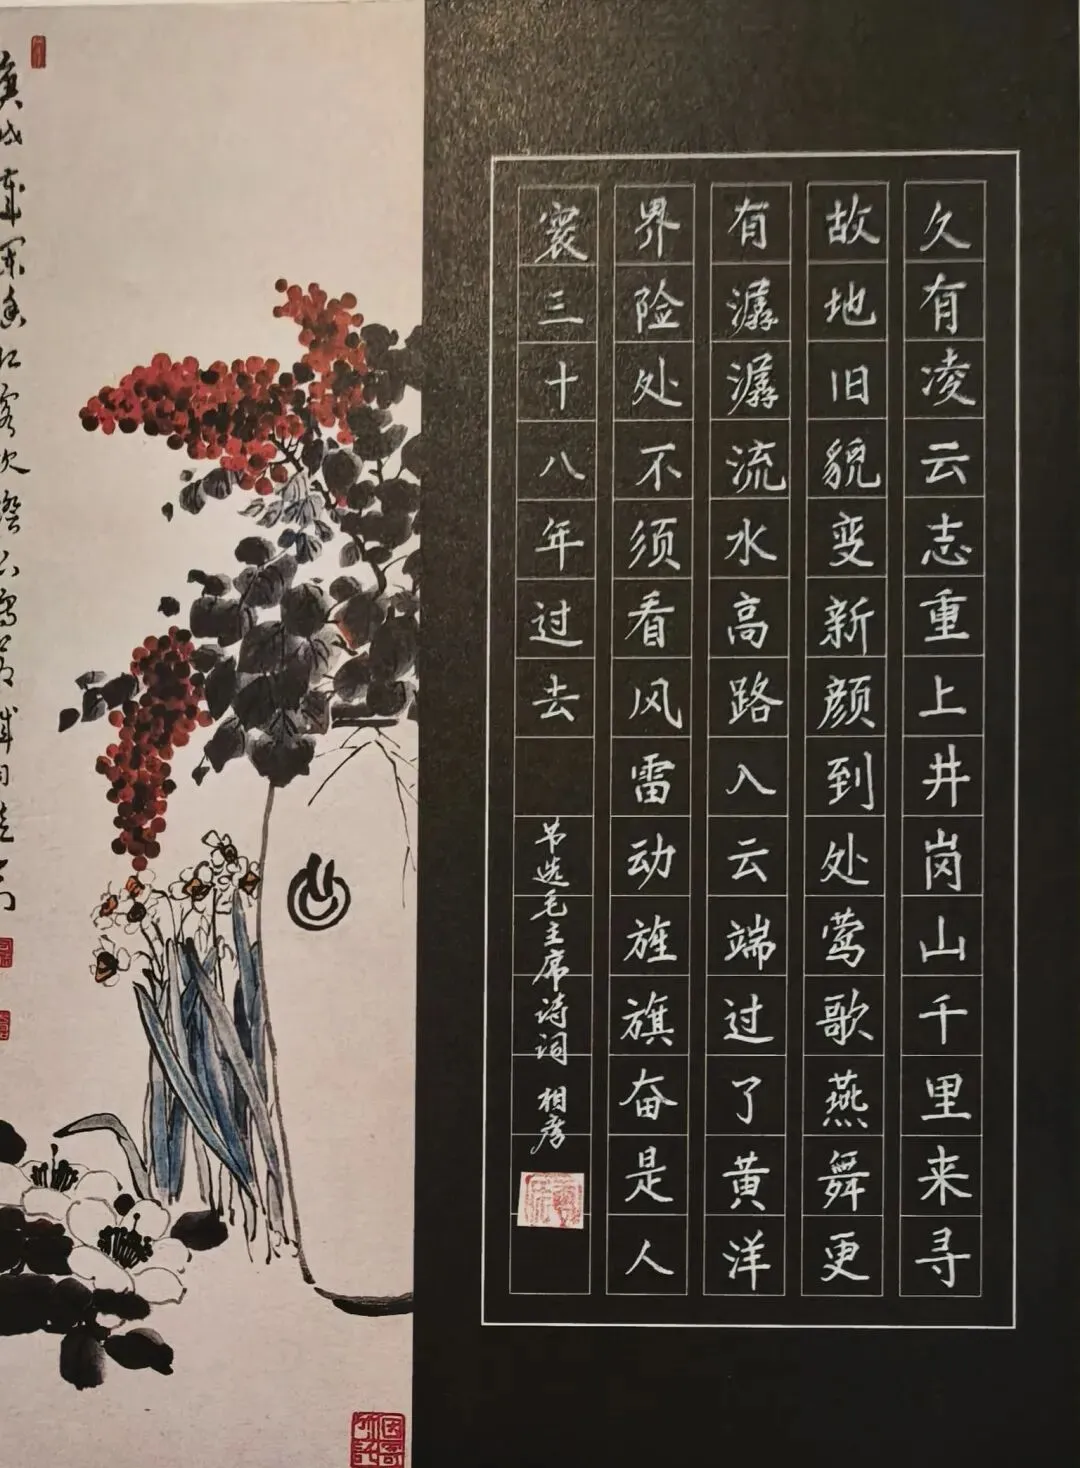 久有凌云志重上井岗山千里来寻
故地旧貌变新颜到处莺歌燕舞更
有潺潺流水高路入云端过了黄洋
界险处不须看风雷动旌旗奋是人
寰三十八年过去
节选毛主席诗词